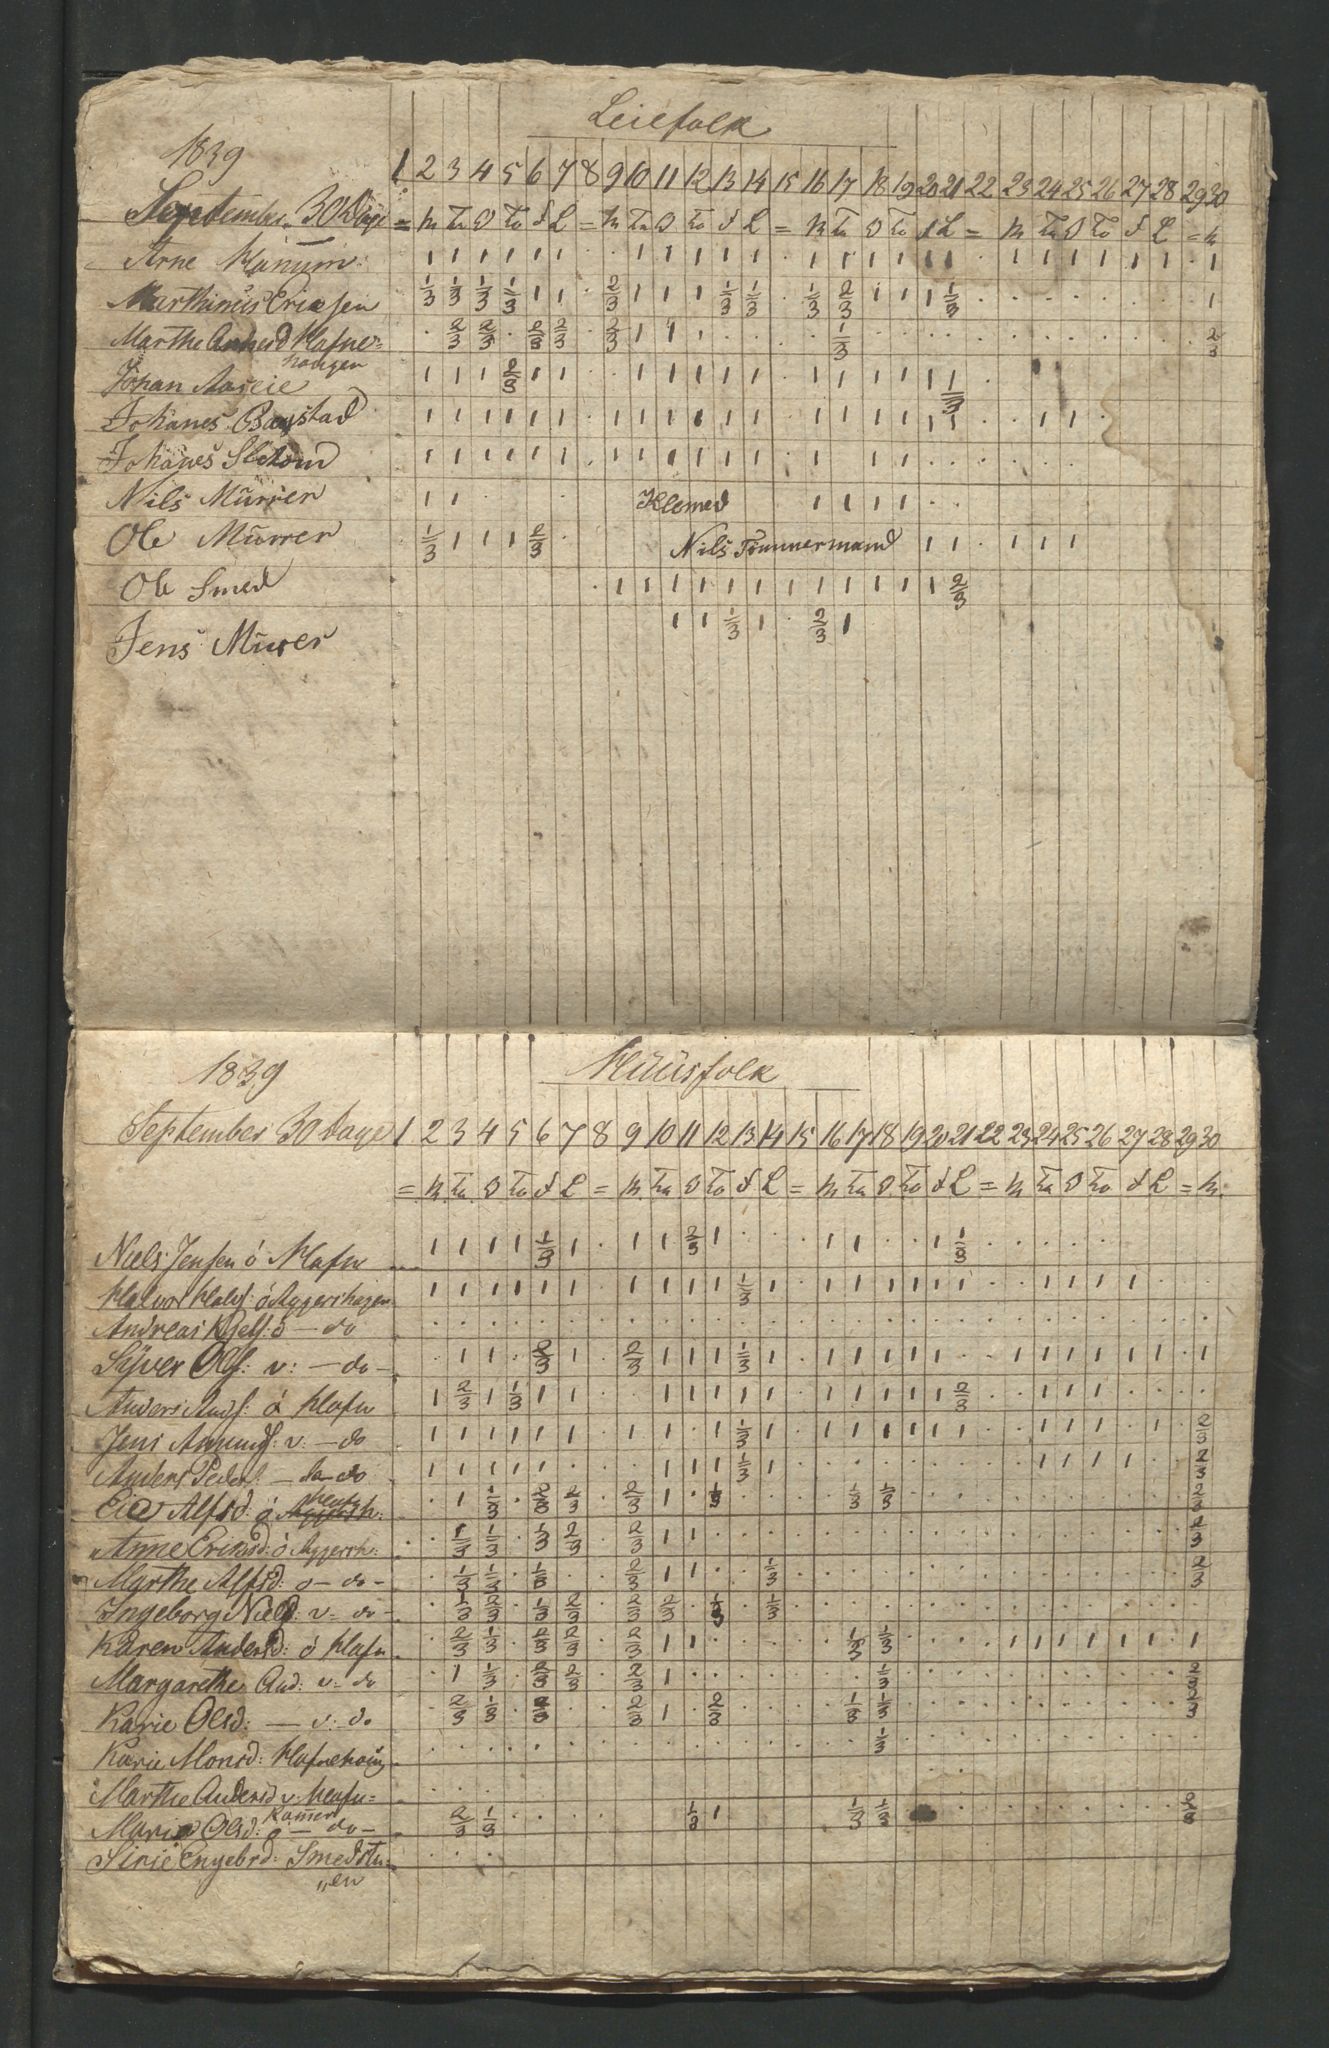 Leiefolk
1839 1 2 3 4 5 6 7 8 9 10 11 12 13 14 15 16 17 18 19 20 21 22 23 24 25 26 27 28 29 30
September 30 Dage = M Tu O To f L = M Tu O To f L = M Tu O To f L = M Tu O To f L = M
Arne 1 1 1 1 1 1 . 1 1 1 1 1 . 1 1 1 1 1 1 . 1 1 1 1 1 1 . 1
Marthinus Ericksen 1/3 1/3 1/3 1/3 1 1 . 2/3 1 1 1 1/3 1/3 . 1/3 2/3 1 1 1 1/3 . . . . . . . . 1
Marthe Andersd Hafne= . 2/3 2/3 . 2/3 2/3 . 2/3 1 1 1 . . . . . 1/3 . . . . . . . . . . . . 2/3
haugen
Johan 1 1 1 2/3 1 1 . . 1 1 1 1 1 . 1 1 1 1 1 1/3 .
Johanes Baustad 1 1 1 1 1 1 . 1 1 1 1 1 1 . 1 1 1 1 1 1 . . 1 1 .
Johanes 1 1 1 1 1 1 . 1 1 1 1 1 1 . 1 . 1 1 . . . .
Nils Mürrer 1 1 . . . . Klemed 1 1 1 1 . .
Ole Mürrer 1/3 1 1 1 2/3 . Nils Tömmermand 1 1 . 1 1 1
Ole Smed . 1 1 1 1 1 1 1 1 1 1 1 1 2/3
Jens Mürer 1 1 1/3 1 . 2/3 1
1839 Hüüsfolk
September 30 Dage 1 2 3 4 5 6 7 8 9 10 11 12 13 14 15 16 17 18 19 20 21 22 23 24 25 26 27 28 29 30
= M Tu O To f L = M Tu O To f L = M Tu O To f L = M Tu O To f L = M
Niels Jensen ó Hafn 1 1 1 1 1/3 1 . 1 1 2/3 1 . . . 1 1 . . 1 1/3 . . . . .
Halvor Halvs: ó Aggershagen 1 1 1 1 1 1 . 1 1 1 1 1/3 1 . 1 1 1 1 1 1 . . 1 1 1 1 . .
Andreas Kjels: ó — do . . . . . . . . . . . . . . . . . . . . . . . . . . . . .
Syver Ols: v: — do — . 1 1 . 2/3 1 . 2/3 1 1 1 1/3 1 . 1 1 1 1 1 . . 1 1 1 1 1 1 . 1
Anders Ands: ó Hafn 1 2/3 1 1/3 1 1 . . 1 1 1 1 1 . 1 1 1 1 1 2/3 . . 1 1 1 . . . .
Jens Amunds: v: — do 1 1 1 1 1 1 . 1 1 1 . 1 1/3 1 . 1 1 1 1 1 1 . . 1 1 1 . 1 . 2/3
Anders Peders: — do — do 1 1 1 1 1 . . . 1 1 1 1/3 1 . . . . . . . . 1 1 1 1 . . 2/3
Alfsd: ó . 1 1/3 . 2/3 2/3 . 2/3 1 . 1/3 . . . . 1/3 1/3 . . . . . . . . . . . 2/3
Anne Ericksd: ó Aggersh: . 1/3 1/3 . 1/3 2/3 . 2/3 1 1 . . . . . . . . . . . . . . . . . . 2/3
Marthe Alfsd: o — do — . 1/3 1/3 . 1/3 . . 2/3 1 1 . . 1/3 . . . . . . . . . . . . . . . 2/3
Ingeborg Nielsd: v: do — . 1/3 2/3 . 1/3 2/3 . 2/3 2/3 . 1/3 . 1/3 . . . . . . . . . . . . . . . .
Karen Andersd: ó Hafn . 2/3 1/3 . 2/3 2/3 . 2/3 1 1 . . . . . 1/3 1/3 . . . . 1 1 1 1 1 1 . 1
Margarethe And: v: do . 1 1/3 . 2/3 2/3 . 2/3 1 . . . . . . . 1/3 . . . . . . . . . . . 2/3
Karie Olsd: — v: do . 2/3 1/3 . 2/3 . . 2/3 1 . 2/3 . . . . 1/3 1/3 . . . . . . . . . . . 2/3
Karie Monsd: Hafnehaug . . . . . . . . . . . . . . . . 1/3 . . . . . . . . . . . .
Marthe Andersd v: Hafn= . . .
Kamer
Maria Olsd: o — do — . 2/3 1/3 . . . . . . 1/3 1 1/3 1/3 . . . . . . . . . . . 2/3
Sirie Engebrd: Smedstu= . . .
„en